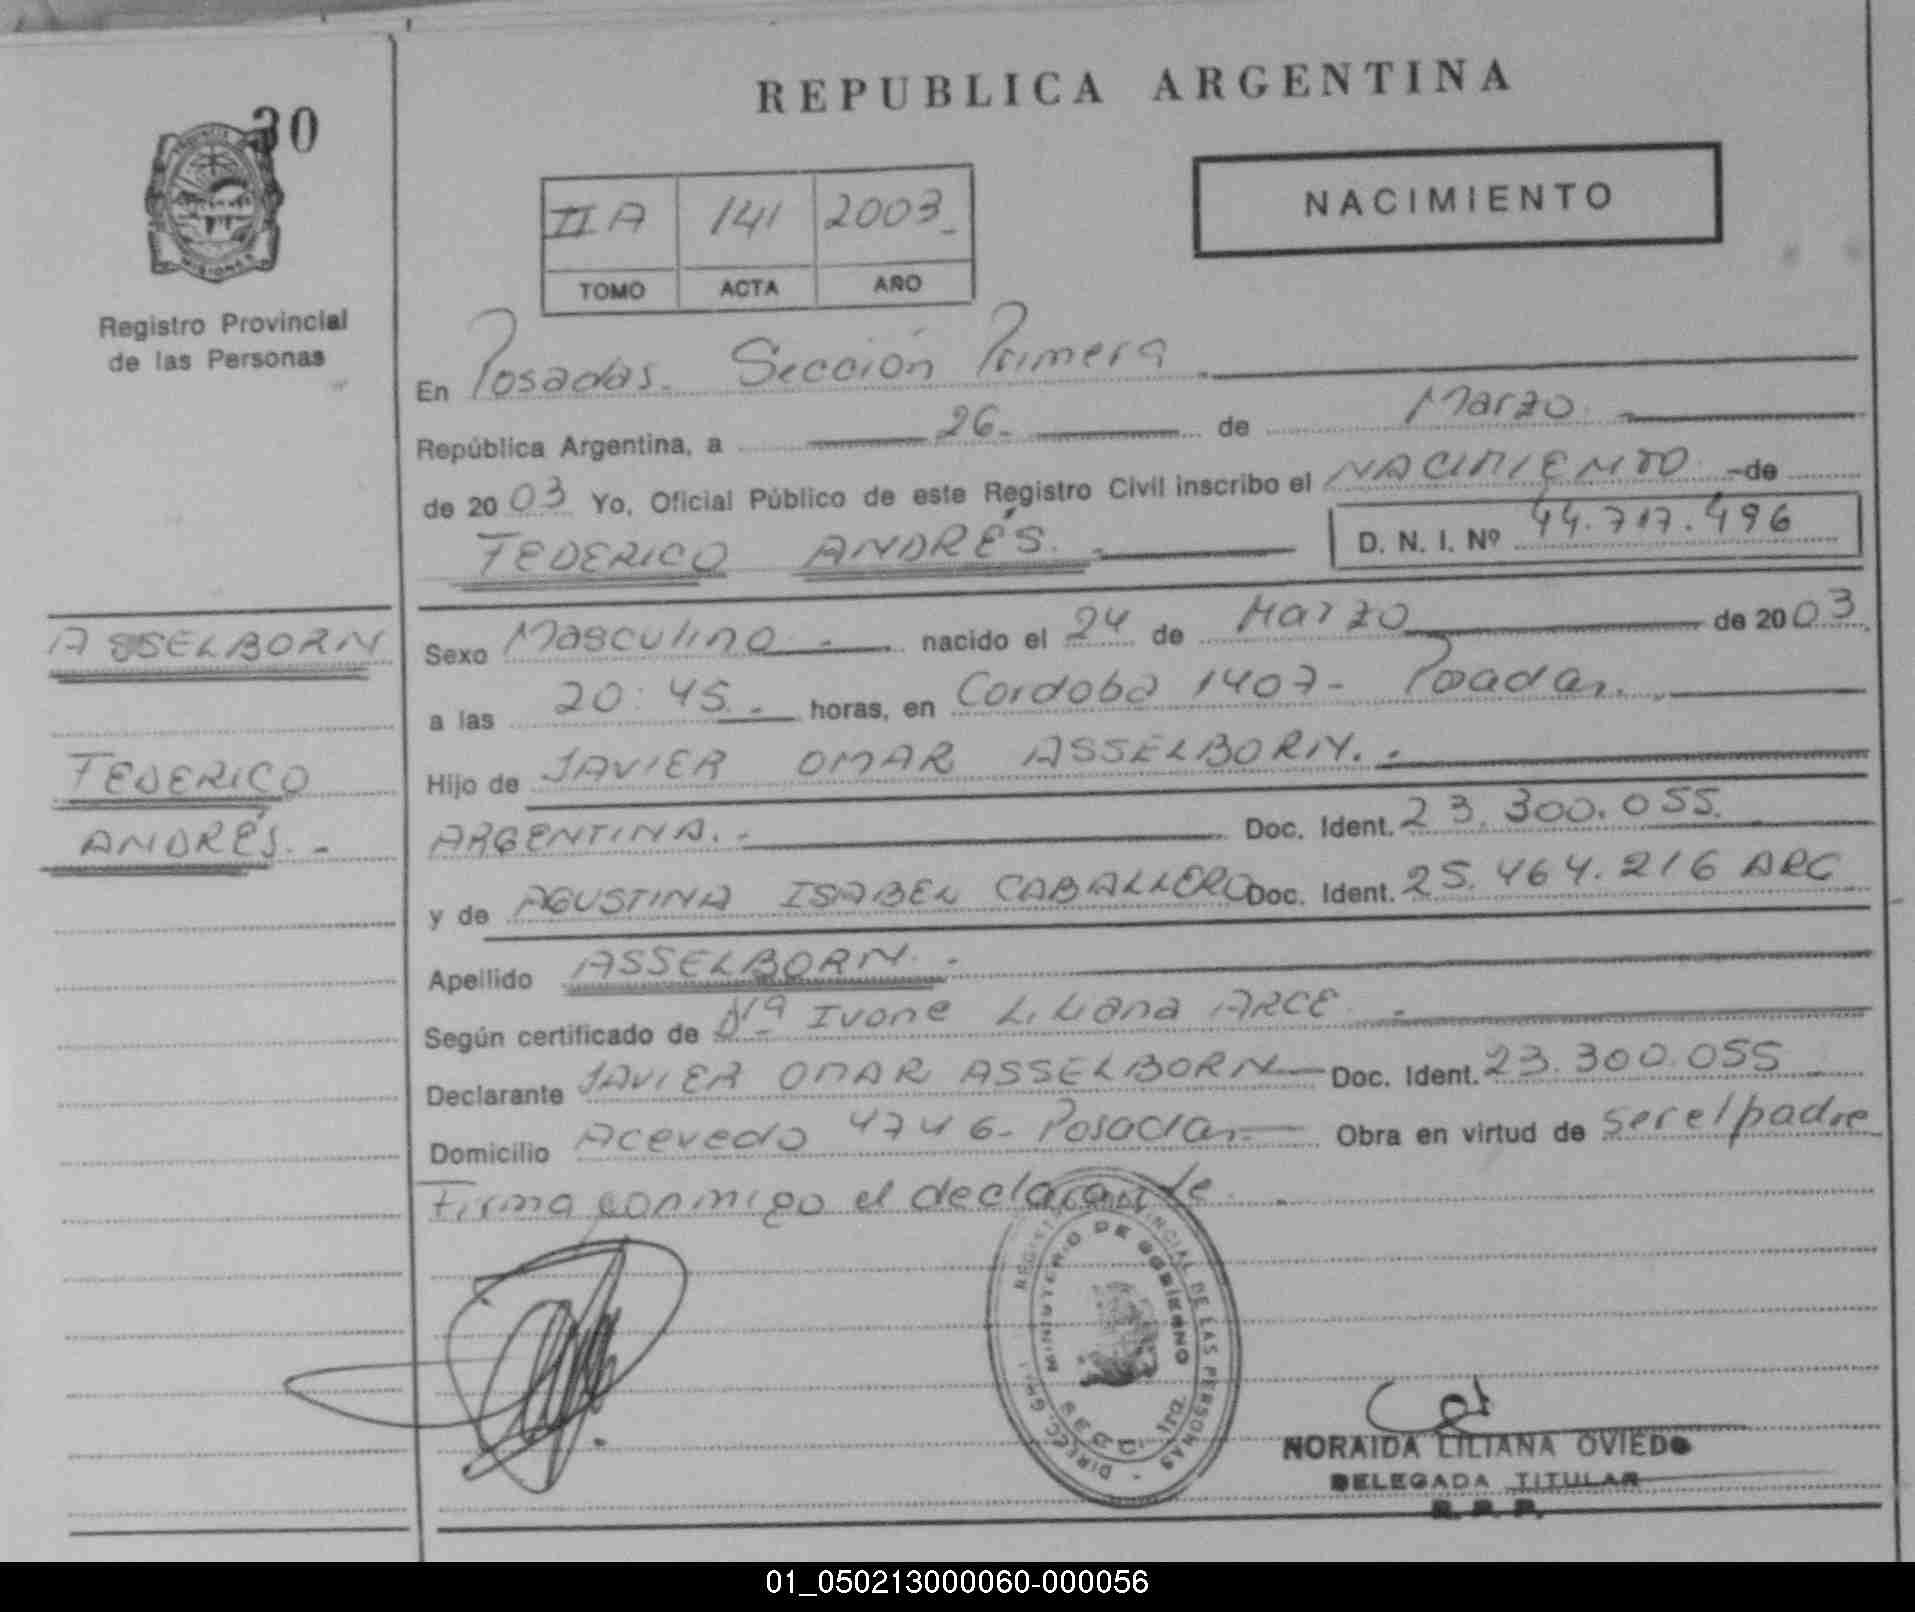 REPUBLICA ARGENTINA
30
PROVINCIA
MISIONES
Registro Provincial
de las Personas
II A 141 2003
TOMO ACTA AÑO
NACIMIENTO
En Posadas. Sección Primera
República Argentina, a 26 de Marzo
de 2003 Yo, Oficial Público de este Registro Civil inscribo el NACIMIENTO de
FEDERICO ANDRÉS. D. N. I. Nº 44.717.496
ASSELBORN
FEDERICO
ANDRÉS.-
Sexo Masculino nacido el 24 de Marzo de 2003
a las 20:45 horas, en Cordoba 1407- Posadas.
Hijo de JAVIER OMAR ASSELBORN.
ARGENTINA. Doc. Ident. 23.300.055.
y de AGUSTINA ISABEL CABALLERO Doc. Ident. 25.464.216 ARG
Apellido ASSELBORN.
Según certificado de Ivone Liliana ARCE
Declarante JAVIER OMAR ASSELBORN Doc. Ident. 23.300.055
Domicilio Acevedo 4746- Posadas Obra en virtud de ser el padre
Firma conmigo el declarante
REGISTRO PROVINCIAL DE LAS PERSONAS - DIRECC. GRAL.
MINISTERIO DE GOBIERNO
SECC. 1ra.
NORAIDA LILIANA OVIEDO
DELEGADA TITULAR
R. P. P.
01_050213000060-000056